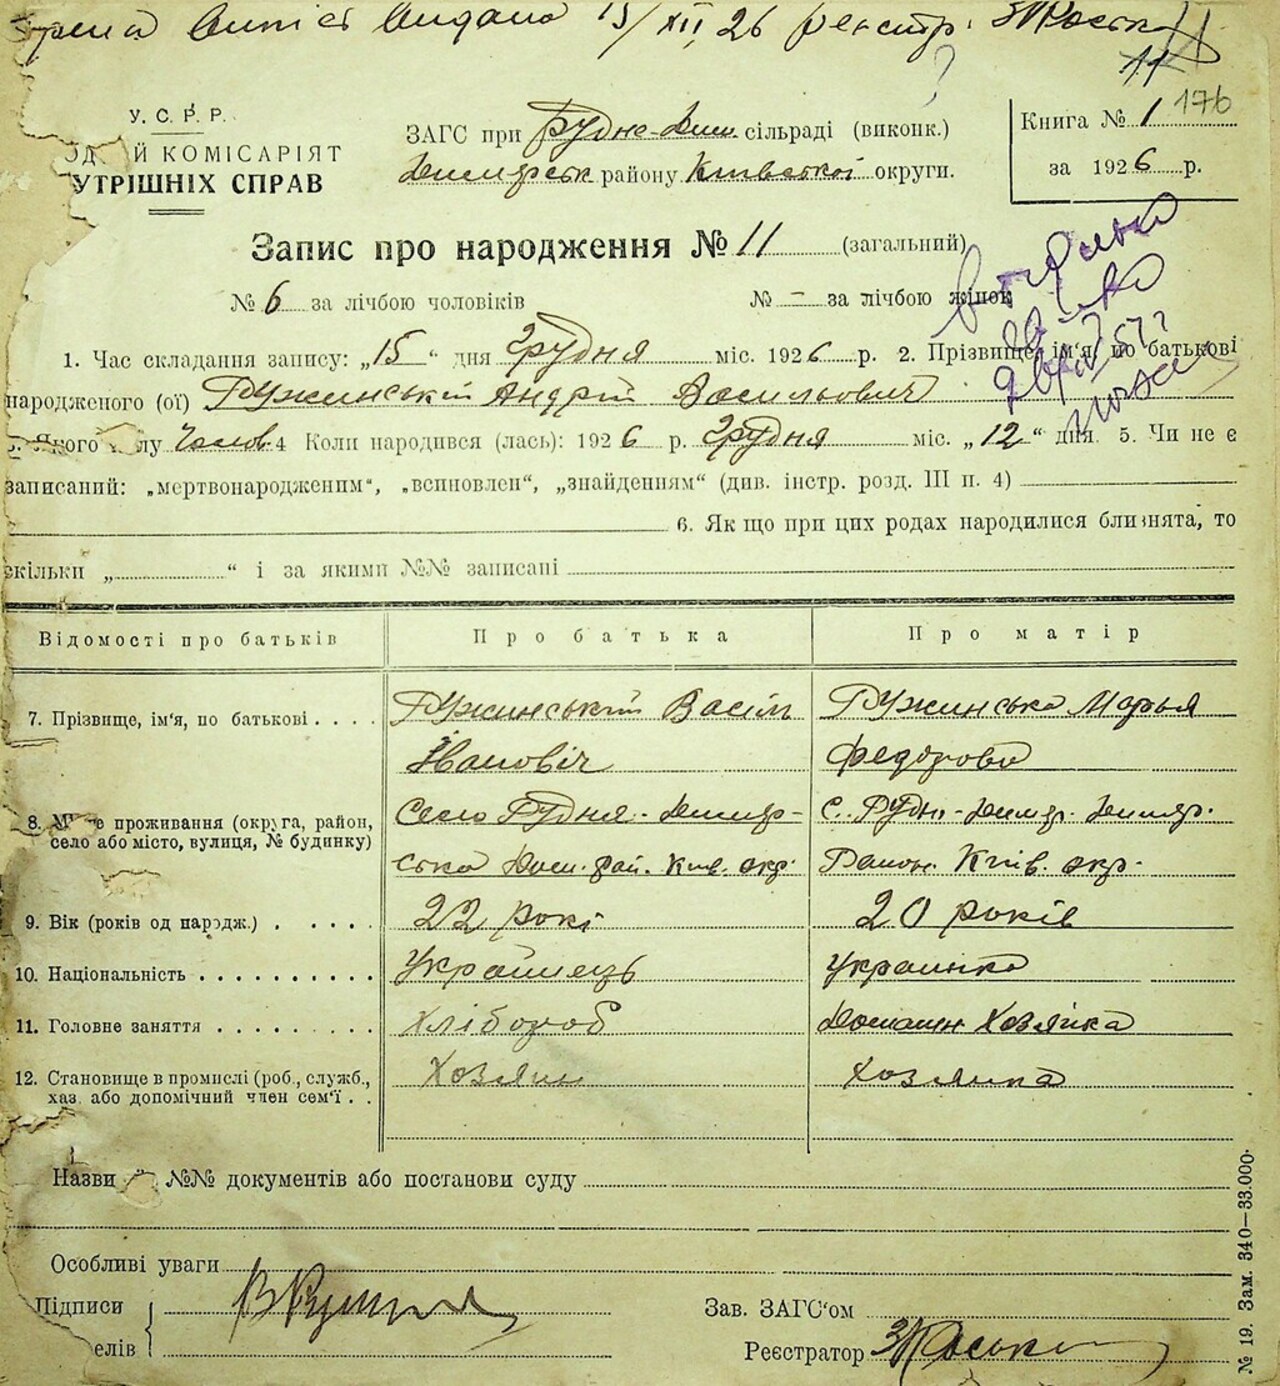 Випись Видана 15/XII 26 реєстр.
11
176
У. С. Р. Р.
ЗАГС при Рудне-Дим. сільраді (виконк.)
Книга № 1
КОМІСАРІЯТ
Димерськ району Київської округи.
за 1926 р.
УТРІШНІХ СПРАВ
Запис про народження № 11 (загальний)
№ 6 за лічбою чоловіків № - за лічбою жінок
1. Час складання запису: „15“ дня Грудня міс. 1926 р. 2. Прізвище, ім'я, по батькові
народженого (ої) Ружинський Андрій Васильович
Якого лу Чолов. 4 Коли народився (лась): 1926 р. Грудня міс. „12“ дня. 5. Чи не є
записаний: „мертвонародженим“, „вспновлен“, „знайденням“ (див. інстр. розд. III п. 4)
6. Як що при цих родах народилися близнята, то
скільки „ “ і за якими №№ записані
Відомості про батьків Про батька Про матір
7. Прізвище, ім'я, по батькові Ружинський Васіль Ружинська Марья
Івановіч Федорова
8. проживання (округа, район, Село Рудня-Димер- С. Рудн-Димер. Димер.
село або місто, вулиця, № будинку)
ська Дим. рай. Київ. окр. Район. Київ. окр.
9. Вік (років од народж.) 22 рокі 20 років
10. Національність Українець Украинка
11. Головне заняття Хлібороб Домашн Хозяйка
12. Становище в промислі (роб., служб., Хозяин хозяика
хаз. або допомічний член сем'ї
Назви №№ документів або постанови суду
Особливі уваги
Підписи
Зав. ЗАГС'ом
елів
Реєстратор
№ 19. Зам. 340—33.000.